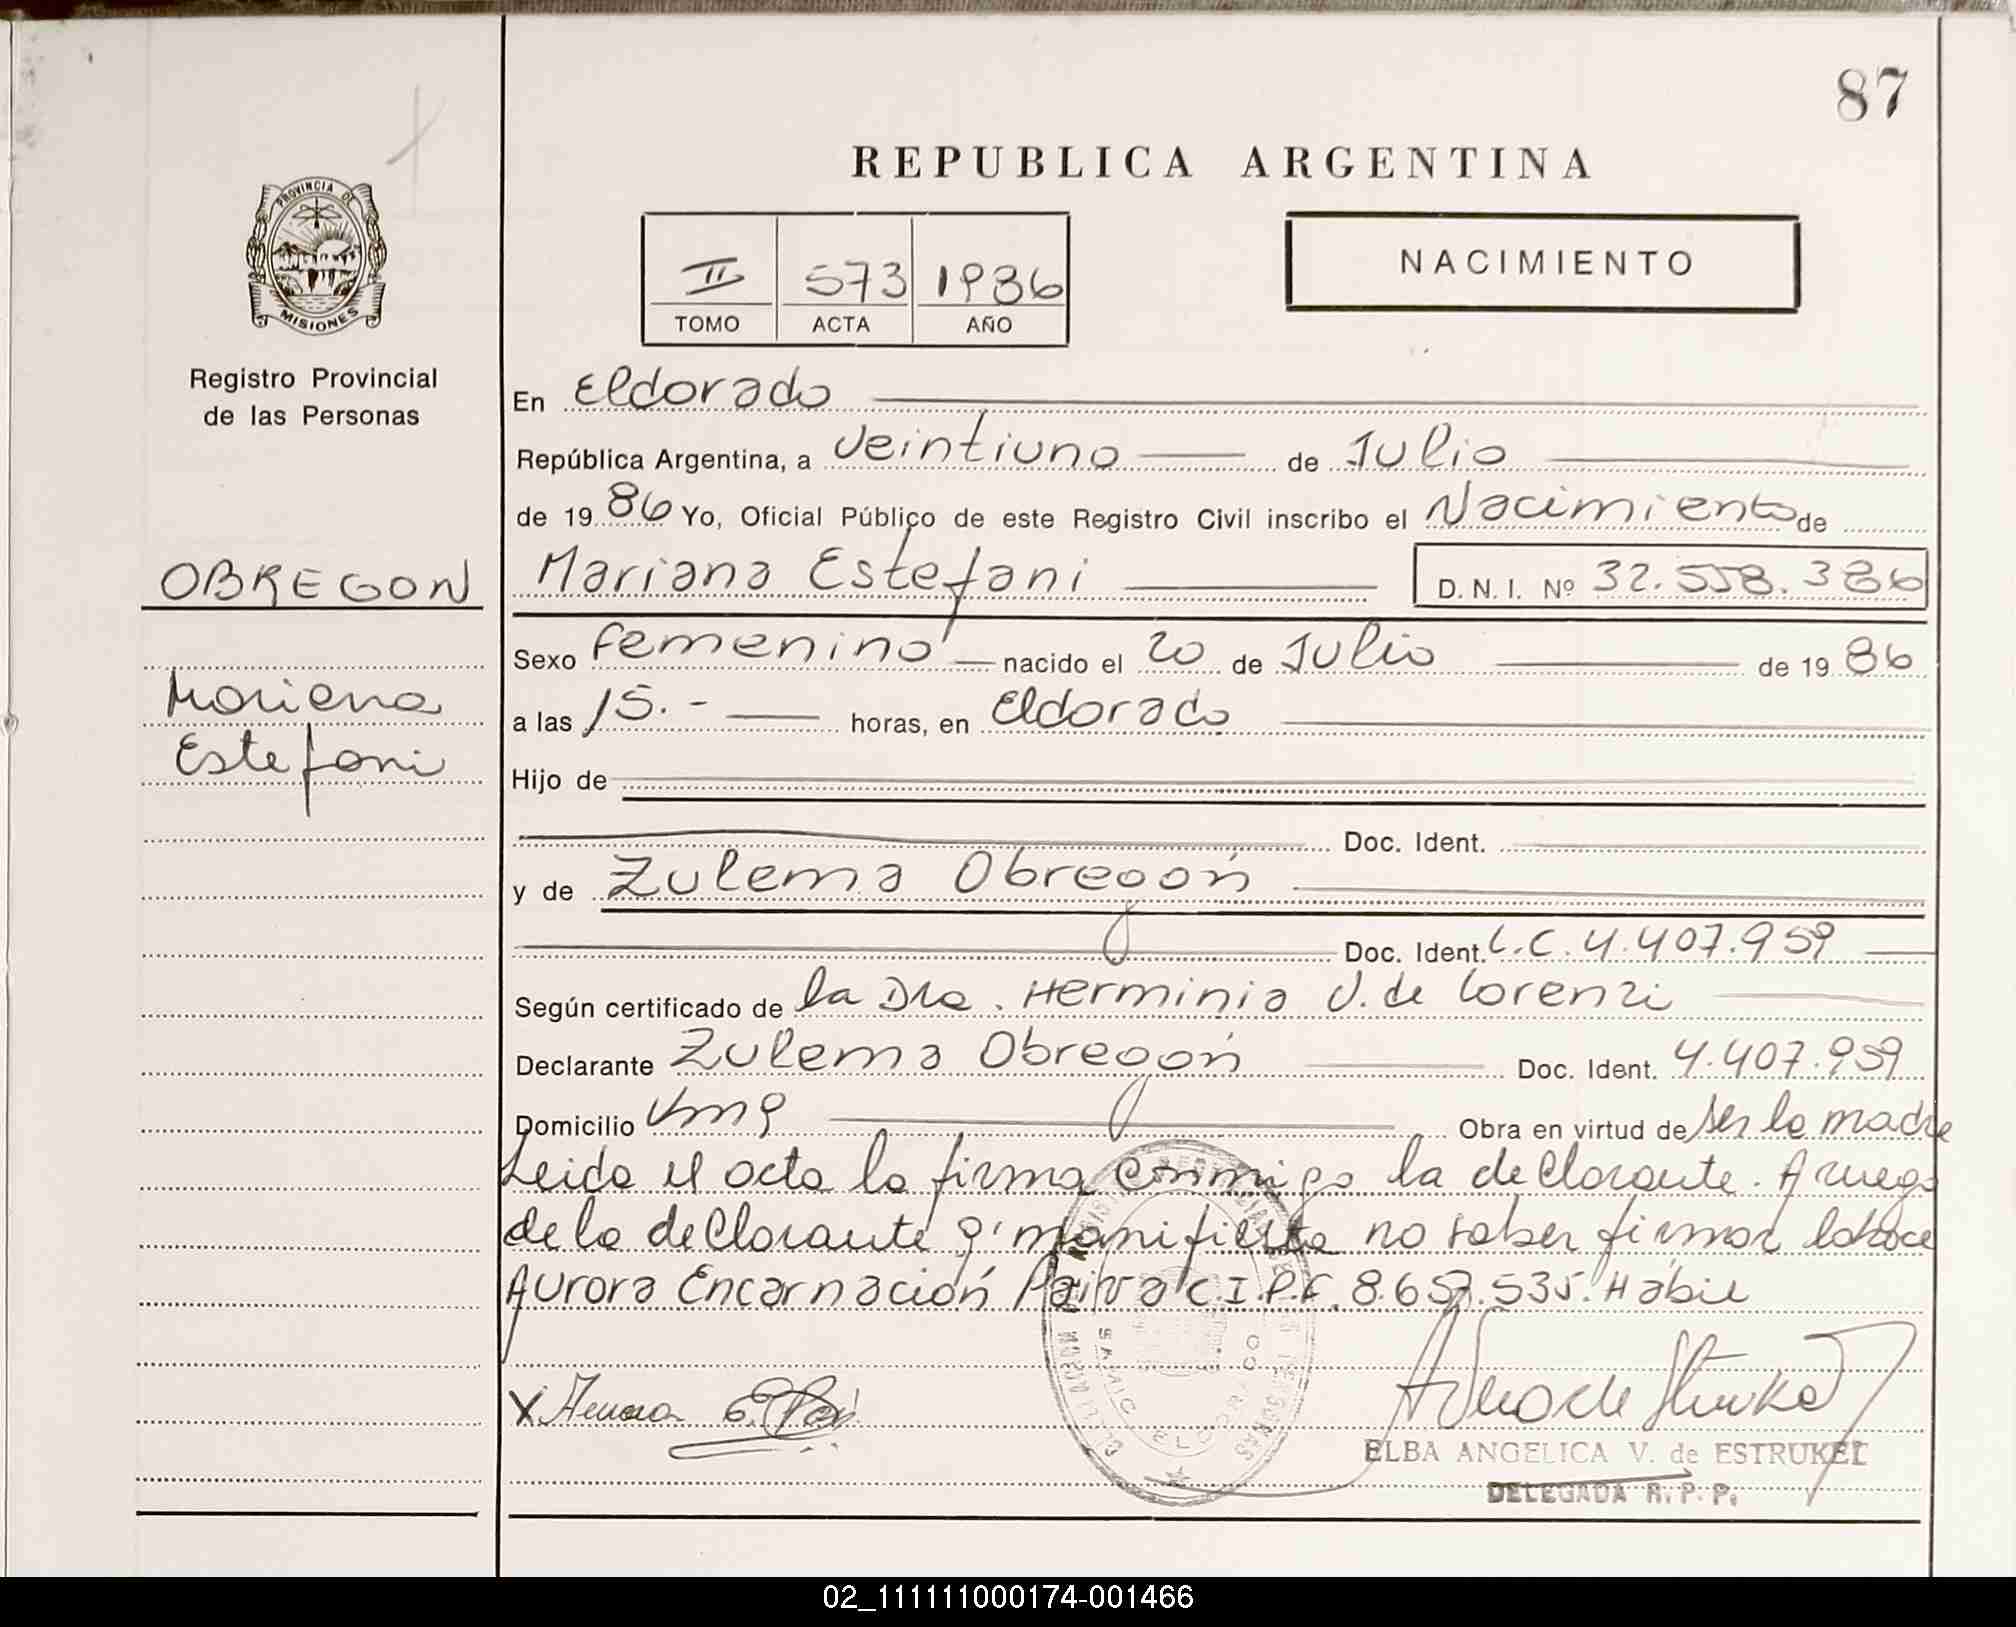 87
REPUBLICA ARGENTINA
PROVINCIA DE
MISIONES
II 573 1986
TOMO ACTA AÑO
NACIMIENTO
Registro Provincial
de las Personas
En Eldorado
República Argentina, a Veintiuno de Julio
de 1986 Yo, Oficial Público de este Registro Civil inscribo el Nacimiento de
OBREGON
Mariana Estefani D. N. I. Nº 32.558.386
Sexo femenino nacido el 20 de Julio de 1986
Mariana
a las 15.- horas, en Eldorado
Estefani
Hijo de
Doc. Ident.
y de Zulema Obregón
Doc. Ident. L.C. 4.407.959
Según certificado de la Dra. Herminia V. de Lorenzi
Declarante Zulema Obregón Doc. Ident. 4.407.959
Domicilio Km9 Obra en virtud de ser la madre
Leida el acta la firma conmigo la declarante. A ruego
de la declarante q' manifiesta no saber firmar lo hace
Aurora Encarnación Paiva C.I.P.F. 8.657.535. Hábil
X Aurora E.
ELBA ANGELICA V. de ESTRUKEL
DELEGADA R. P. P.
SAMIC ELDORADO
02_111111000174-001466